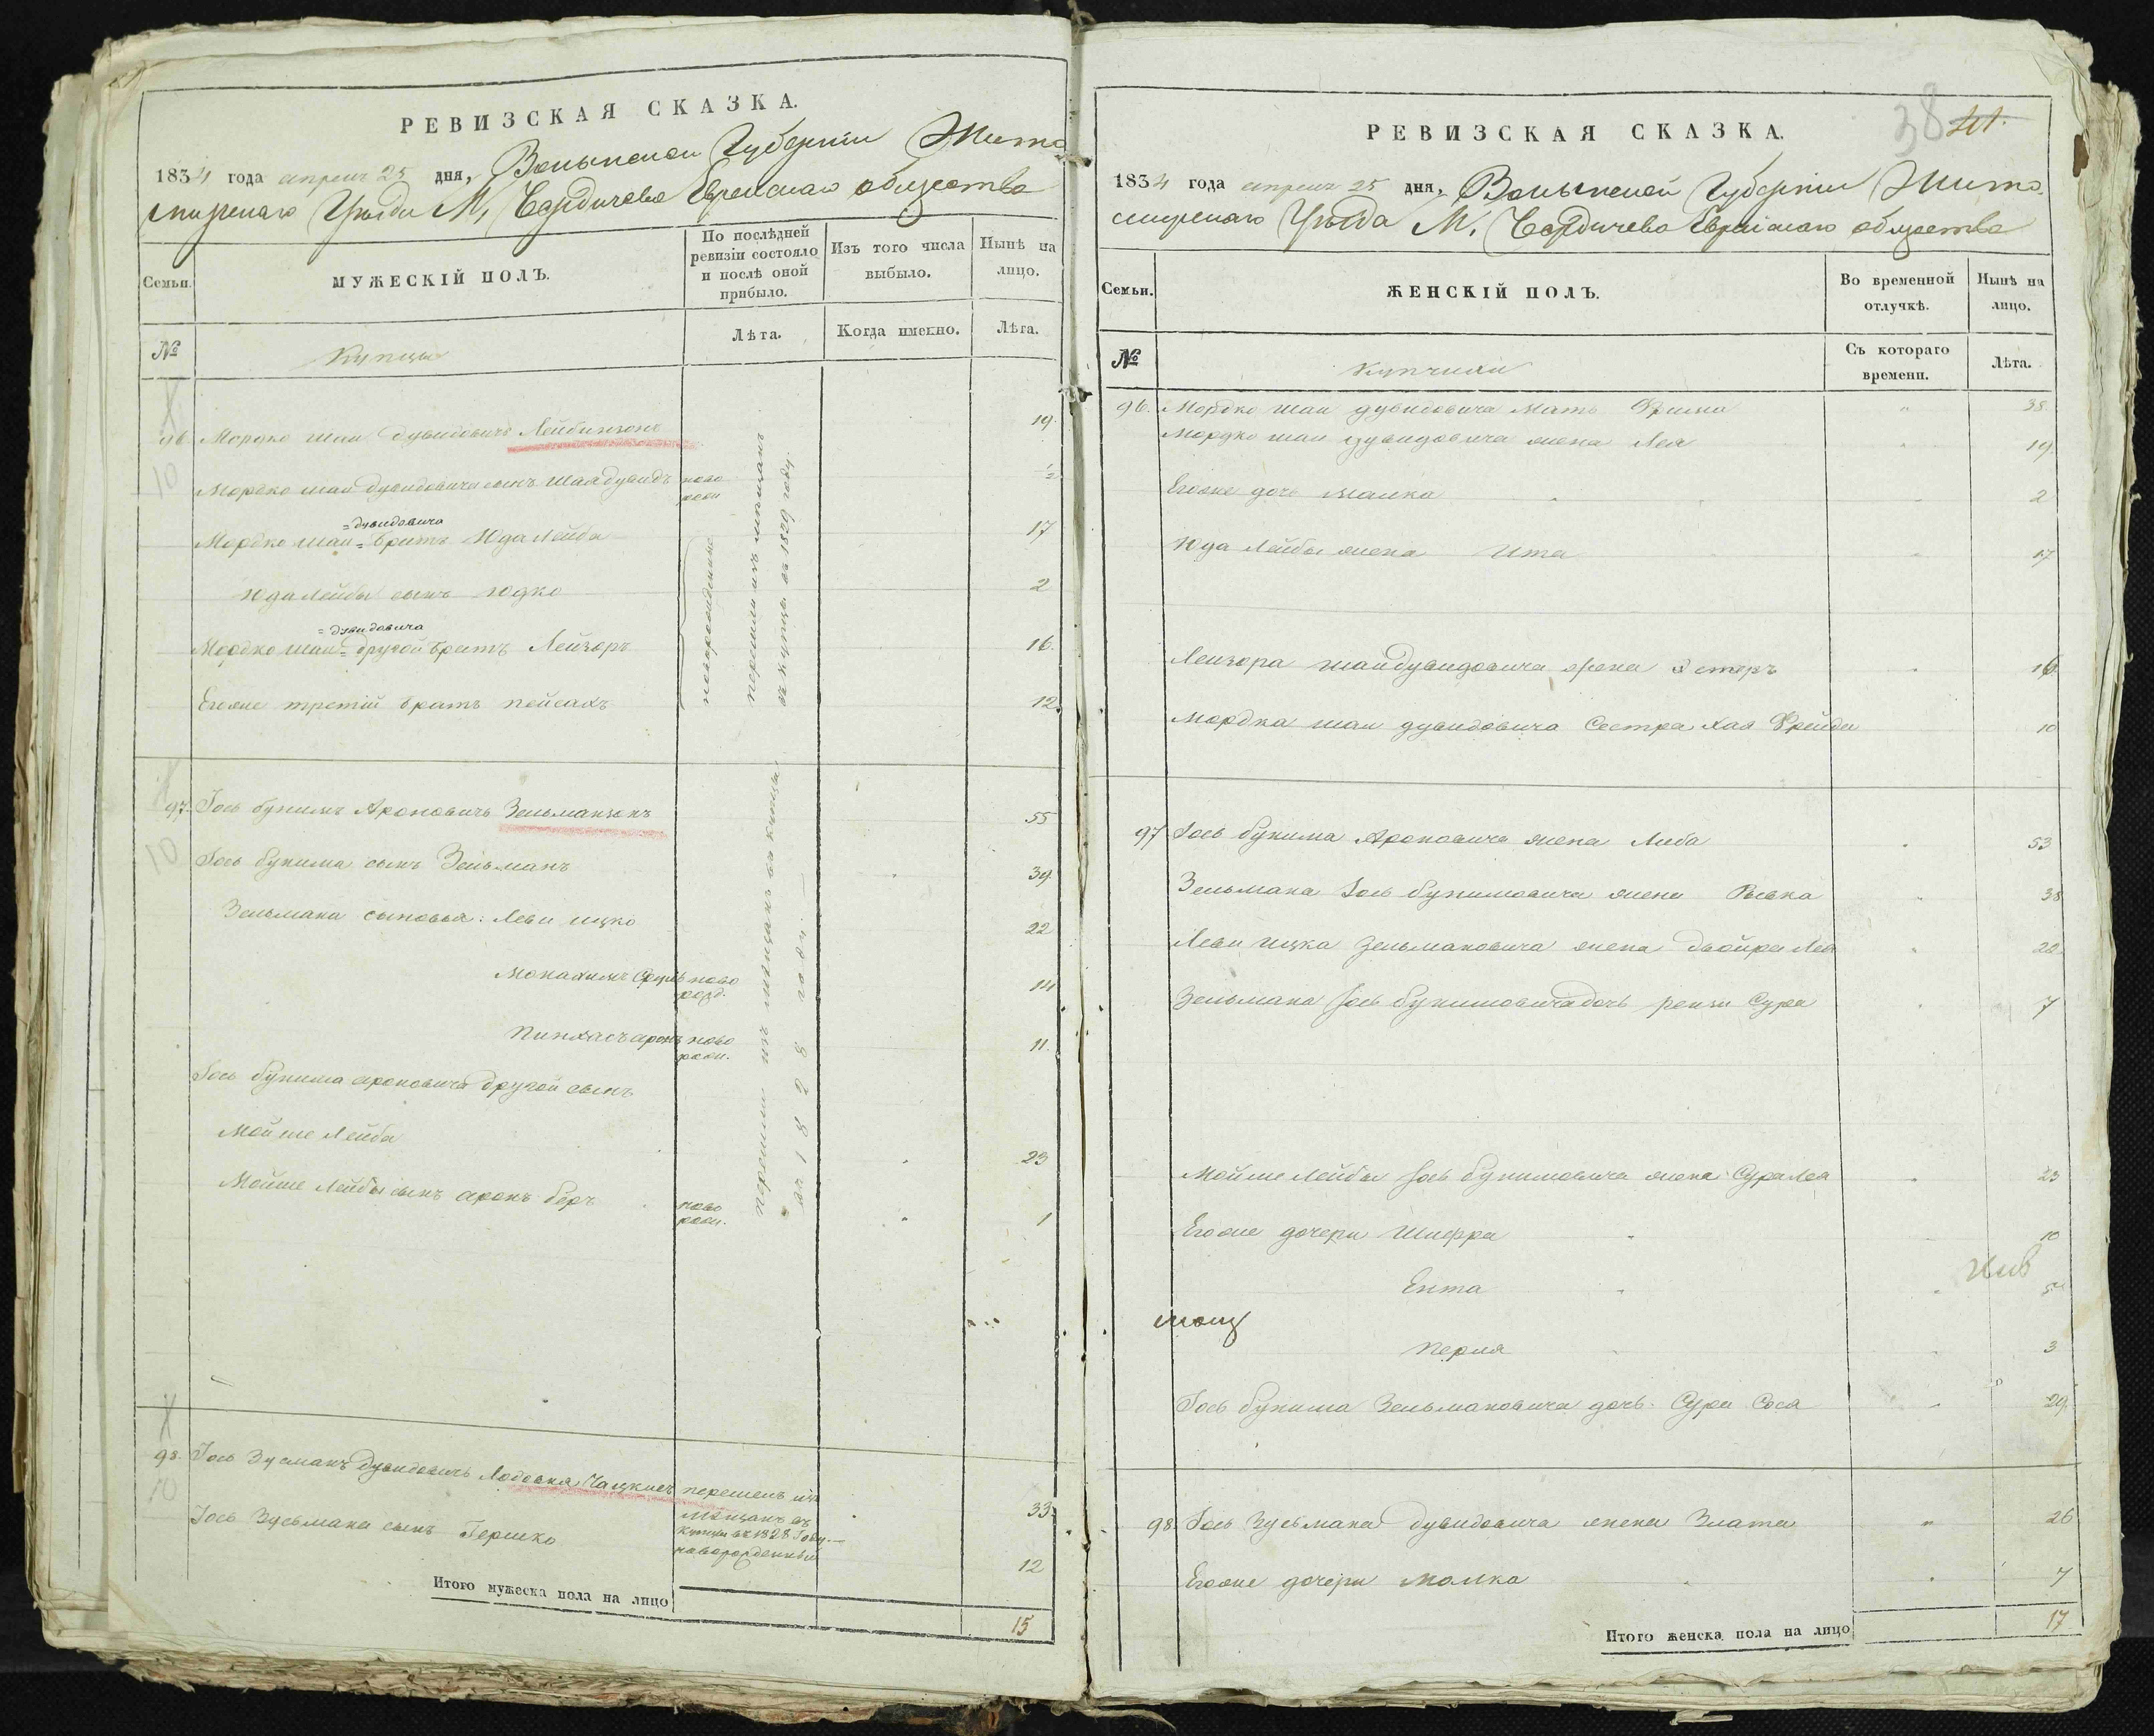 РЕВИЗСКАЯ СКАЗКА.
1834 года апреля 25 дня, Волынской Губерніи Жито
мирскаго Уѣзда М, Бердичева Еврейскаго общества
Семьи.
МУЖЕСКІЙ ПОЛЪ.
По послѣдней
ревизіи состояло
и послѣ оной
прибыло.
Изъ того числа
выбыло.
Нынѣ на
лицо.
№
Купцы
Лѣта.
Когда именно.
Лѣта.
96 Мордко шаи Дувидовичъ Лейбинзонъ 19.
10
Мордко шаи Дувидовича сынъ шаядувидъ ново рож ½
=дувидовича
Мордко шаи= братъ Юда Лейба 17
Юда лейбы сынъ Юдко 2
=дувидовича
Мордко шаи= другой братъ Лейзоръ 16.
Егоже третій братъ пейсахъ 12
новорожденные
перешли изъ мѣщанъ
въ купцы въ 1829 году.
97. Іось бунимъ Ароновичъ Зельманзонъ 55
10
Іось бунима сынъ Зельманъ 39
Зельмана сыновья: Леви ицко 22
Монахимъ Сруль ново рожд. 14
Пинхасъ аронъ ново рож. 11.
Іось бунима ароновича другой сынъ
Мойше Лейба 23
Мойше Лейбы сынъ аронъ беръ ново рож. 1
перешли изъ мѣщанъ въ купцы
въ 1828 году.
98. Іось Зусманъ Дувидовичъ Чацкисъ перешелъ изъ 33
мѣщанъ въ
купцы въ 1828 Году.
10
Іось Зусьмана сынъ Гершко новорожденный 12
Итого мужеска пола на лицо 15
38 41.
РЕВИЗСКАЯ СКАЗКА.
1834 года апреля 25 дня, Волынской Губерніи Жито-
мирскаго Уѣзда М. Бердичева Еврейскаго общества
Семьи.
ЖЕНСКІЙ ПОЛЪ.
Во временной
отлучкѣ.
Нынѣ на
лицо.
№
Купчихи
Съ котораго
времени.
Лѣта.
96. Мордко шаи дувидовича Мать Фрима " 38
Мордко шаи дувидовича жена Лея " 19
Егоже дочь малка " 2
Юда Лейбы жена Ита " 17
Лейзора шаидувидовича жена Эстеръ " 16
Мордка шаи дувидовича Сестра Хая Фрейда 10
97 Іось бунима Ароновича жена Либа " 53
Зельмана Іось бунимовича жена Ривка " 38
Леви Ицка Зельмановича жена двойра Лея " 22
Зельмана Іось бунимовича дочь рейзи Сура " 7
Мойше Лейбы Іось бунимовича жена Сура Лея " 23
Егоже дочери Шифра " 10
Ента " 5
Перля " 3
Іось бунима Зельмановича дочь Сура Сося " 29.
98 Іось Зусьмана дувидовича жена Злата " 26
Егоже дочери Малка " 7
Итого женска пола на лицо 17